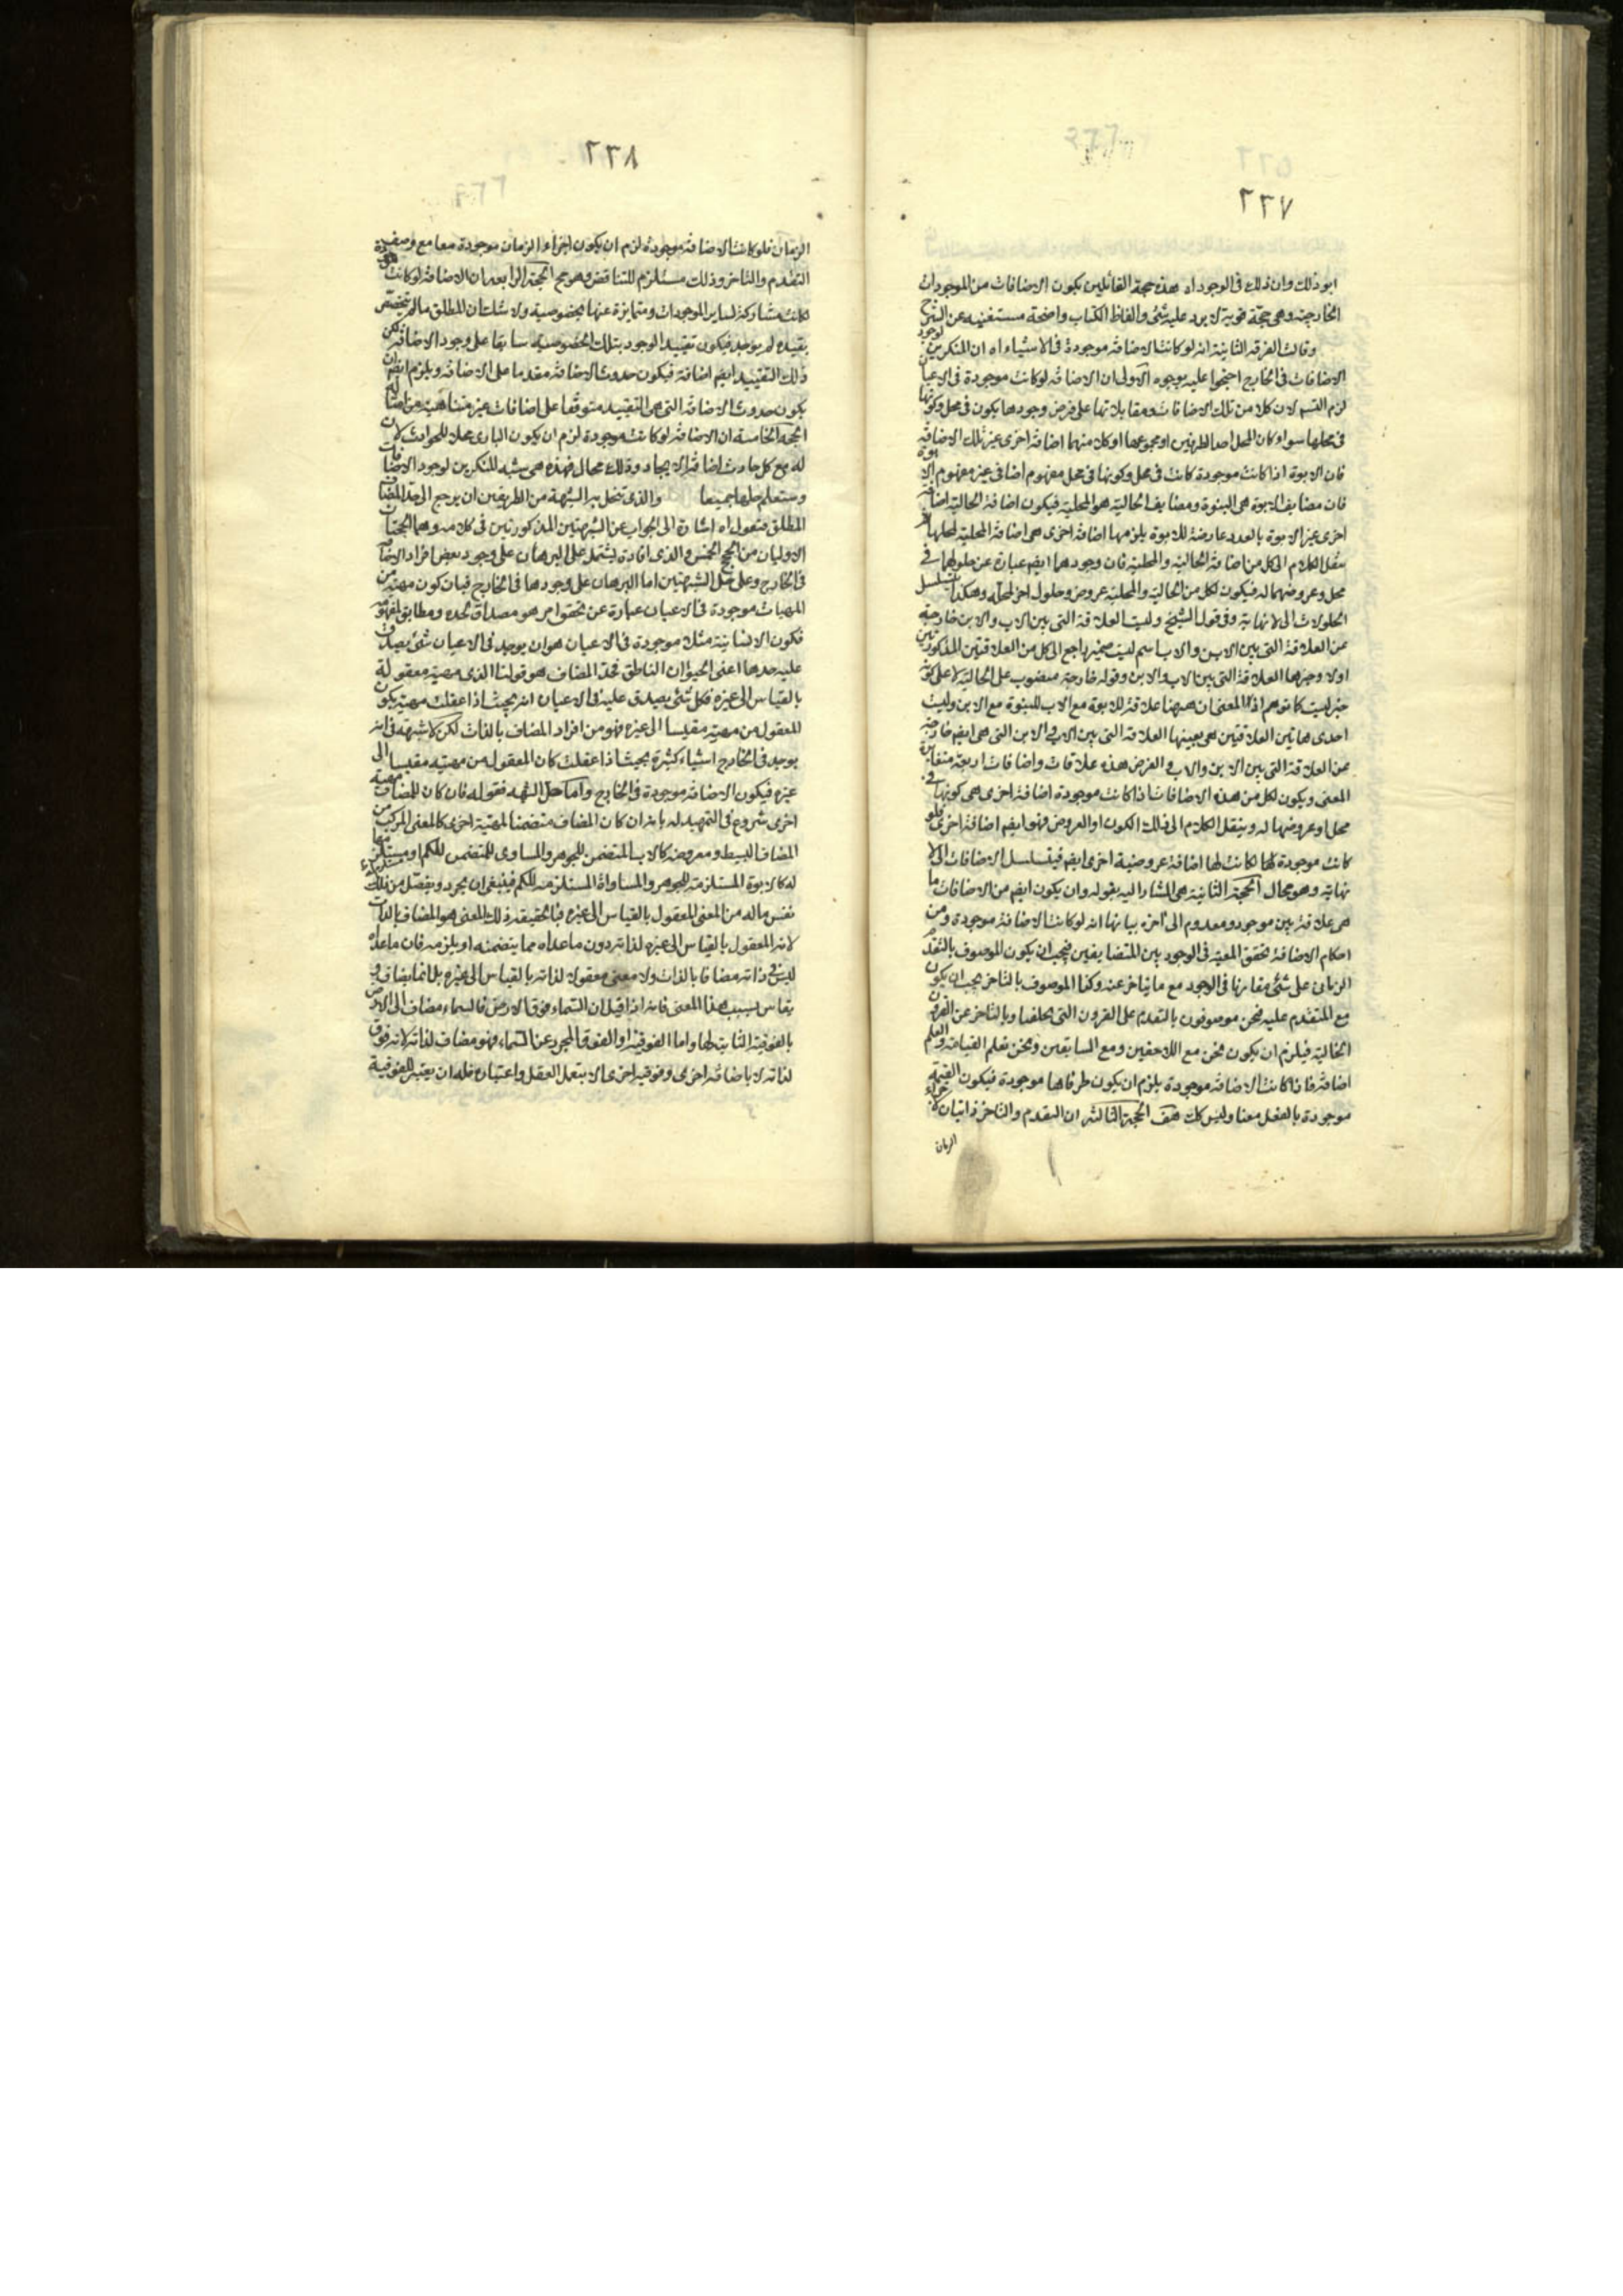 ٢٢٧
ابو ذلك وان ذلك فى الوجود اه هذه حجة القائلين بكون الاضافات من الموجودات
الخارجية وهى حجة قوية لا يرد عليه شئ والفاظ الكتاب واضحة مستغنيه عن الشرح
وقالت الفرقه الثانية انه لو كانت الاضافة موجودة فى الاشياء اه ان المنكرين لوجود
الاضافات فى الخارج احتجوا عليه بوجوه الاولى ان الاضافة لو كانت موجودة فى الاعيان
لزم التسلسل لان كلا من تلك الاضافات ومقابلاتها على فرض وجودها يكون فى محل وكونها
فى محلها سواء كان المحل احد الطرفين او مجموعها او كل منهما اضافة اخرى غير تلك الاضافة
فان الابوة اذا كانت موجودة كانت فى محل وكونها فى محل مفهوم اضافى غير مفهوم الابوة
فان مضايف الابوة هى البنوة ومضايف الحالية هو المحلية فيكون اضافة الحالية اضافة
اخرى غير الابوة بالعدد عارضة للابوة يلزمها اضافة اخرى هى اضافة المحلية لمحلها ثم
ينقل الكلام الى كل من اضافة الحالية والمحلية فان وجودهما ايضا عبارة عن حلولهما فى
محل وعروضهما له فيكون لكل من الحالية والمحلية عروض وحلول اخر لمحله وهكذا يتسلسل
الحلولات الى لا نهاية وفى قول الشيخ وليست العلاقة التى بين الاب والابن خارجة
عن العلاقة التى بين الابن والاب اسم ليست ضمير راجع الى كل من العلاقتين المذكورتين
اولا وخبرها العلاقة التى بين الاب والابن وقوله خارجة منصوب على الحالية لا على كونه
خبر ليست كما توهم اذ المعنى ان ههنا علاقة للابوة مع الاب للبنوة مع الابن وليست
احدى هاتين العلاقتين هى بعينها العلاقة التى بين الاب والابن التى هى ايضا خارجة
عن العلاقة التى بين الابن والاب والغرض هذه علاقات واضافات اربعة متغايرة
المعنى ويكون لكل من هذه الاضافات اذا كانت موجودة اضافة اخرى هى كونها فى
محل او عروضها له وينقل الكلام الى ذلك الكون او العروض فهو ايضا اضافة اخرى فلو
كانت موجودة لكانت لها اضافة عروضية اخرى ايضا فيتسلسل الاضافات الى لا
نهاية وهو محال الحجة الثانية هى المشار اليه بقوله وان يكون ايضا من الاضافات ما
هى علاقة بين موجود ومعدوم الى اخره بيانها انه لو كانت الاضافة موجودة ومن
احكام الاضافة تحقق المعية فى الوجود بين المتضايفين فيجب ان يكون الموصوف بالتقدم
الزمانى على شئ مقارنا فى الوجود مع ما يتاخر عنه وكذا الموصوف بالتاخر يجب ان يكون
مع المتقدم عليه فنحن موصوفون بالتقدم على القرون التى تخلفنا وبالتاخر عن القرون
الخالية فيلزم ان يكون نحن مع اللاحقين ومع السابقين ونحن نعلم القيامة والعلم
اضافة فاذا كانت الاضافة موجودة يلزم ان يكون طرفاها موجودة فيكون القيمة
موجودة بالفعل معنا وليس كك هف الحجة الثالثه ان التقدم والتاخر ذاتيان لاجزاء
الزمان
٢٢٨
الزمان فلو كانت الاضافة موجودة لزم ان يكون اجزاء الزمان موجودة معا مع وصف
التقدم والتاخر وذلك مستلزم للتناقض وهو مح الحجة الرابعة ان الاضافة لو كانت موجودة
لكانت مشاركة لساير الموجودات ومتمايزة عنها بخصوصية ولا شك ان المطلق ما لم يتخصص
بقيده لم يوجد فيكون تقييد الوجود بتلك الخصوصية سابقا على وجود الاضافة لكن
ذلك التقييد ايضا اضافة فيكون حدوث الاضافة مقدما على الاضافة ويلزم ايضا ان
يكون حدوث الاضافة التى هى التقييد متوقفا على اضافات غير متناهية من امثاله
الحجة الخامسة ان الاضافة لو كانت موجودة لزم ان يكون البارى محلا للحوادث لان
له مع كل حادث اضافة الايجاد وذلك محال فهذه هى شبه المنكرين لوجود الاضافات
وستعلم حلها جميعا والذى تنحل به الشبهة من الطريقين ان يرجع الى حد المضاف
المطلق فنقول اه اشارة الى الجواب عن الشبهتين المذكورتين فى كلامه وهما الحجتان
الاوليان من الحجج الخمس والذى افاده يشتمل على البرهان على وجود بعض افراد الاضافة
فى الخارج وعلى حل الشبهتين اما البرهان على وجودها فى الخارج فبان كون مهية من
المهيات موجودة فى الاعيان عبارة عن تحقق امر هو مصداق لحده ومطابق لمفهومه
فكون الانسانية مثلا موجودة فى الاعيان هو ان يوجد فى الاعيان شئ يصدق
عليه حدها اعنى الحيوان الناطق فحد المضاف هو قولنا الذى مهيته معقولة
بالقياس الى غيره فكل شئ يصدق عليه فى الاعيان انه بحيث اذا عقلت مهيته يكون
المعقول من مهيته مقيسا الى غيره فهو من افراد المضاف بالذات لكن لا شبهة فى انه
يوجد فى الخارج اشياء كثيرة بحيث اذا عقلت كان المعقول من مهيته مقيسا الى
غيره فيكون الاضافة موجودة فى الخارج واما حل الشبهه فقوله فان كان للمضاف مهية
اخرى شروع فى التمهيد له بانه ان كان المضاف متضمنا لمهية اخرى كالمعنى المركب من
المضاف البسيط ومعروضه كالاب المتضمن للجوهر والمساوى المتضمن للكم او مستلزما
له كالابوة المستلزمة للجوهر والمساواة المستلزمه للكم فينبغى ان يجرد ويفصل من ذلك
نفس ماله من المعنى المعقول بالقياس الى غيره فبالحقيقة ذلك المعنى هو المضاف بالذات
لانه المعقول بالقياس الى غيره لذاته دون ما عداه مما يتضمنه او يلزمه فان ما عداه
ليس فى ذاته مضافا بالذات ولا معنى معقولا لذاته بالقياس الى غيره بل انما يضاف و
يقاس بسبب هذا المعنى فانه اذا قيل ان السماء فوق الارض فالسماء مضاف الى الارض
بالفوقية الثابتة لها واما الفوقية او الفوق المجرد عن السماء فهو مضاف لذاته لانه فوق
لذاته لا باضافة اخرى وفوقيه اخرى الا بتعمل العقل واعتباره فله ان يعتبر للفوقية